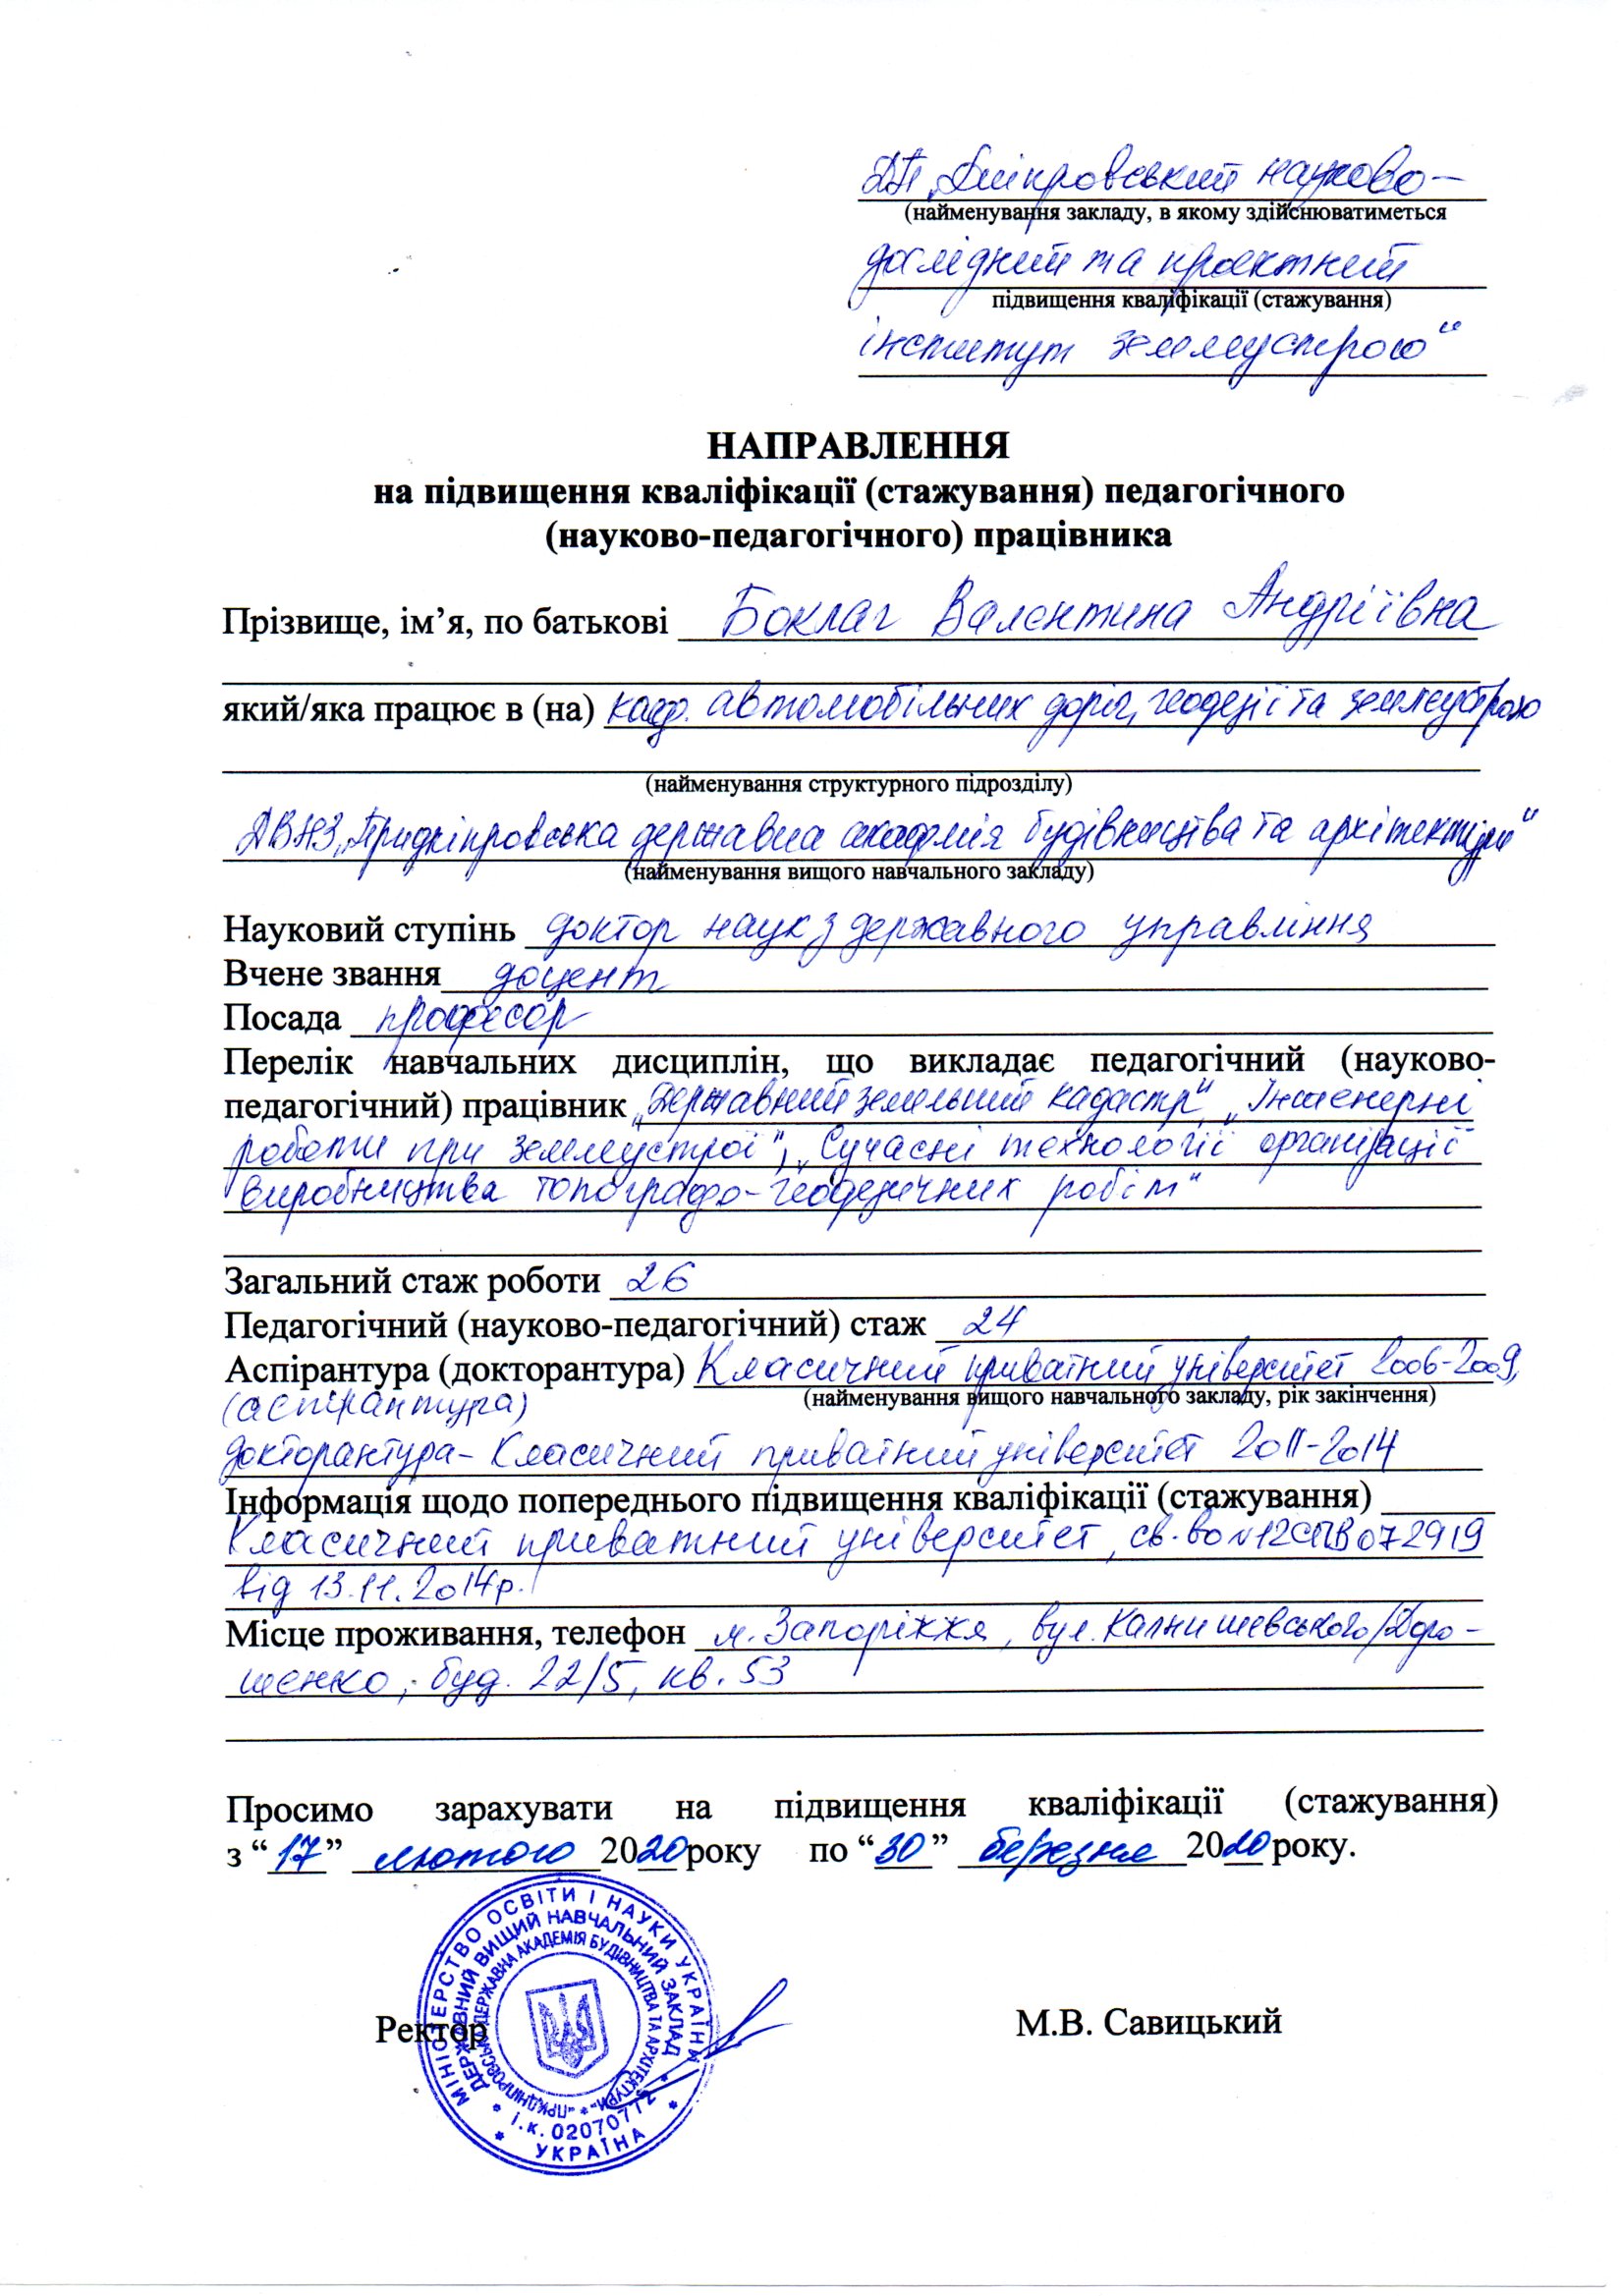 ДП „Дніпровський науково-
(найменування закладу, в якому здійснюватиметься
дослідний та проектний
підвищення кваліфікації (стажування)
інститут землеустрою"
НАПРАВЛЕННЯ
на підвищення кваліфікації (стажування) педагогічного
(науково-педагогічного) працівника
Прізвище, ім’я, по батькові Боклаг Валентина Андріївна
який/яка працює в (на) каф. автомобільних доріг, геодезії та землеустрою
(найменування структурного підрозділу)
ДВНЗ „Придніпровська державна академія будівництва та архітектури"
(найменування вищого навчального закладу)
Науковий ступінь доктор наук з державного управління
Вчене звання доцент
Посада професор
Перелік навчальних дисциплін, що викладає педагогічний (науково-
педагогічний) працівник „Державний земельний кадастр", „Інженерні
роботи при землеустрої", „Сучасні технології організації
виробництва топографо-геодезичних робіт"
Загальний стаж роботи 26
Педагогічний (науково-педагогічний) стаж 24
Аспірантура (докторантура) Класичний приватний університет 2006-2009,
(найменування вищого навчального закладу, рік закінчення)
(аспірантура)
докторантура - Класичний приватний університет 2011-2014
Інформація щодо попереднього підвищення кваліфікації (стажування)
Класичний приватний університет, св-во N12СПВ072919
від 13.11.2014р.
Місце проживання, телефон м. Запоріжжя, вул. Калнишевського/Доро-
шенко, буд. 22/5, кв. 53
Просимо зарахувати на підвищення кваліфікації (стажування)
з “17” лютого 2020 року по “30” березня 2020 року.
Ректор М.В. Савицький
МІНІСТЕРСТВО ОСВІТИ І НАУКИ УКРАЇНИ
ДЕРЖАВНИЙ ВИЩИЙ НАВЧАЛЬНИЙ ЗАКЛАД
„ПРИДНІПРОВСЬКА ДЕРЖАВНА АКАДЕМІЯ БУДІВНИЦТВА ТА АРХІТЕКТУРИ"
* і.к. 02070772 *
* УКРАЇНА *